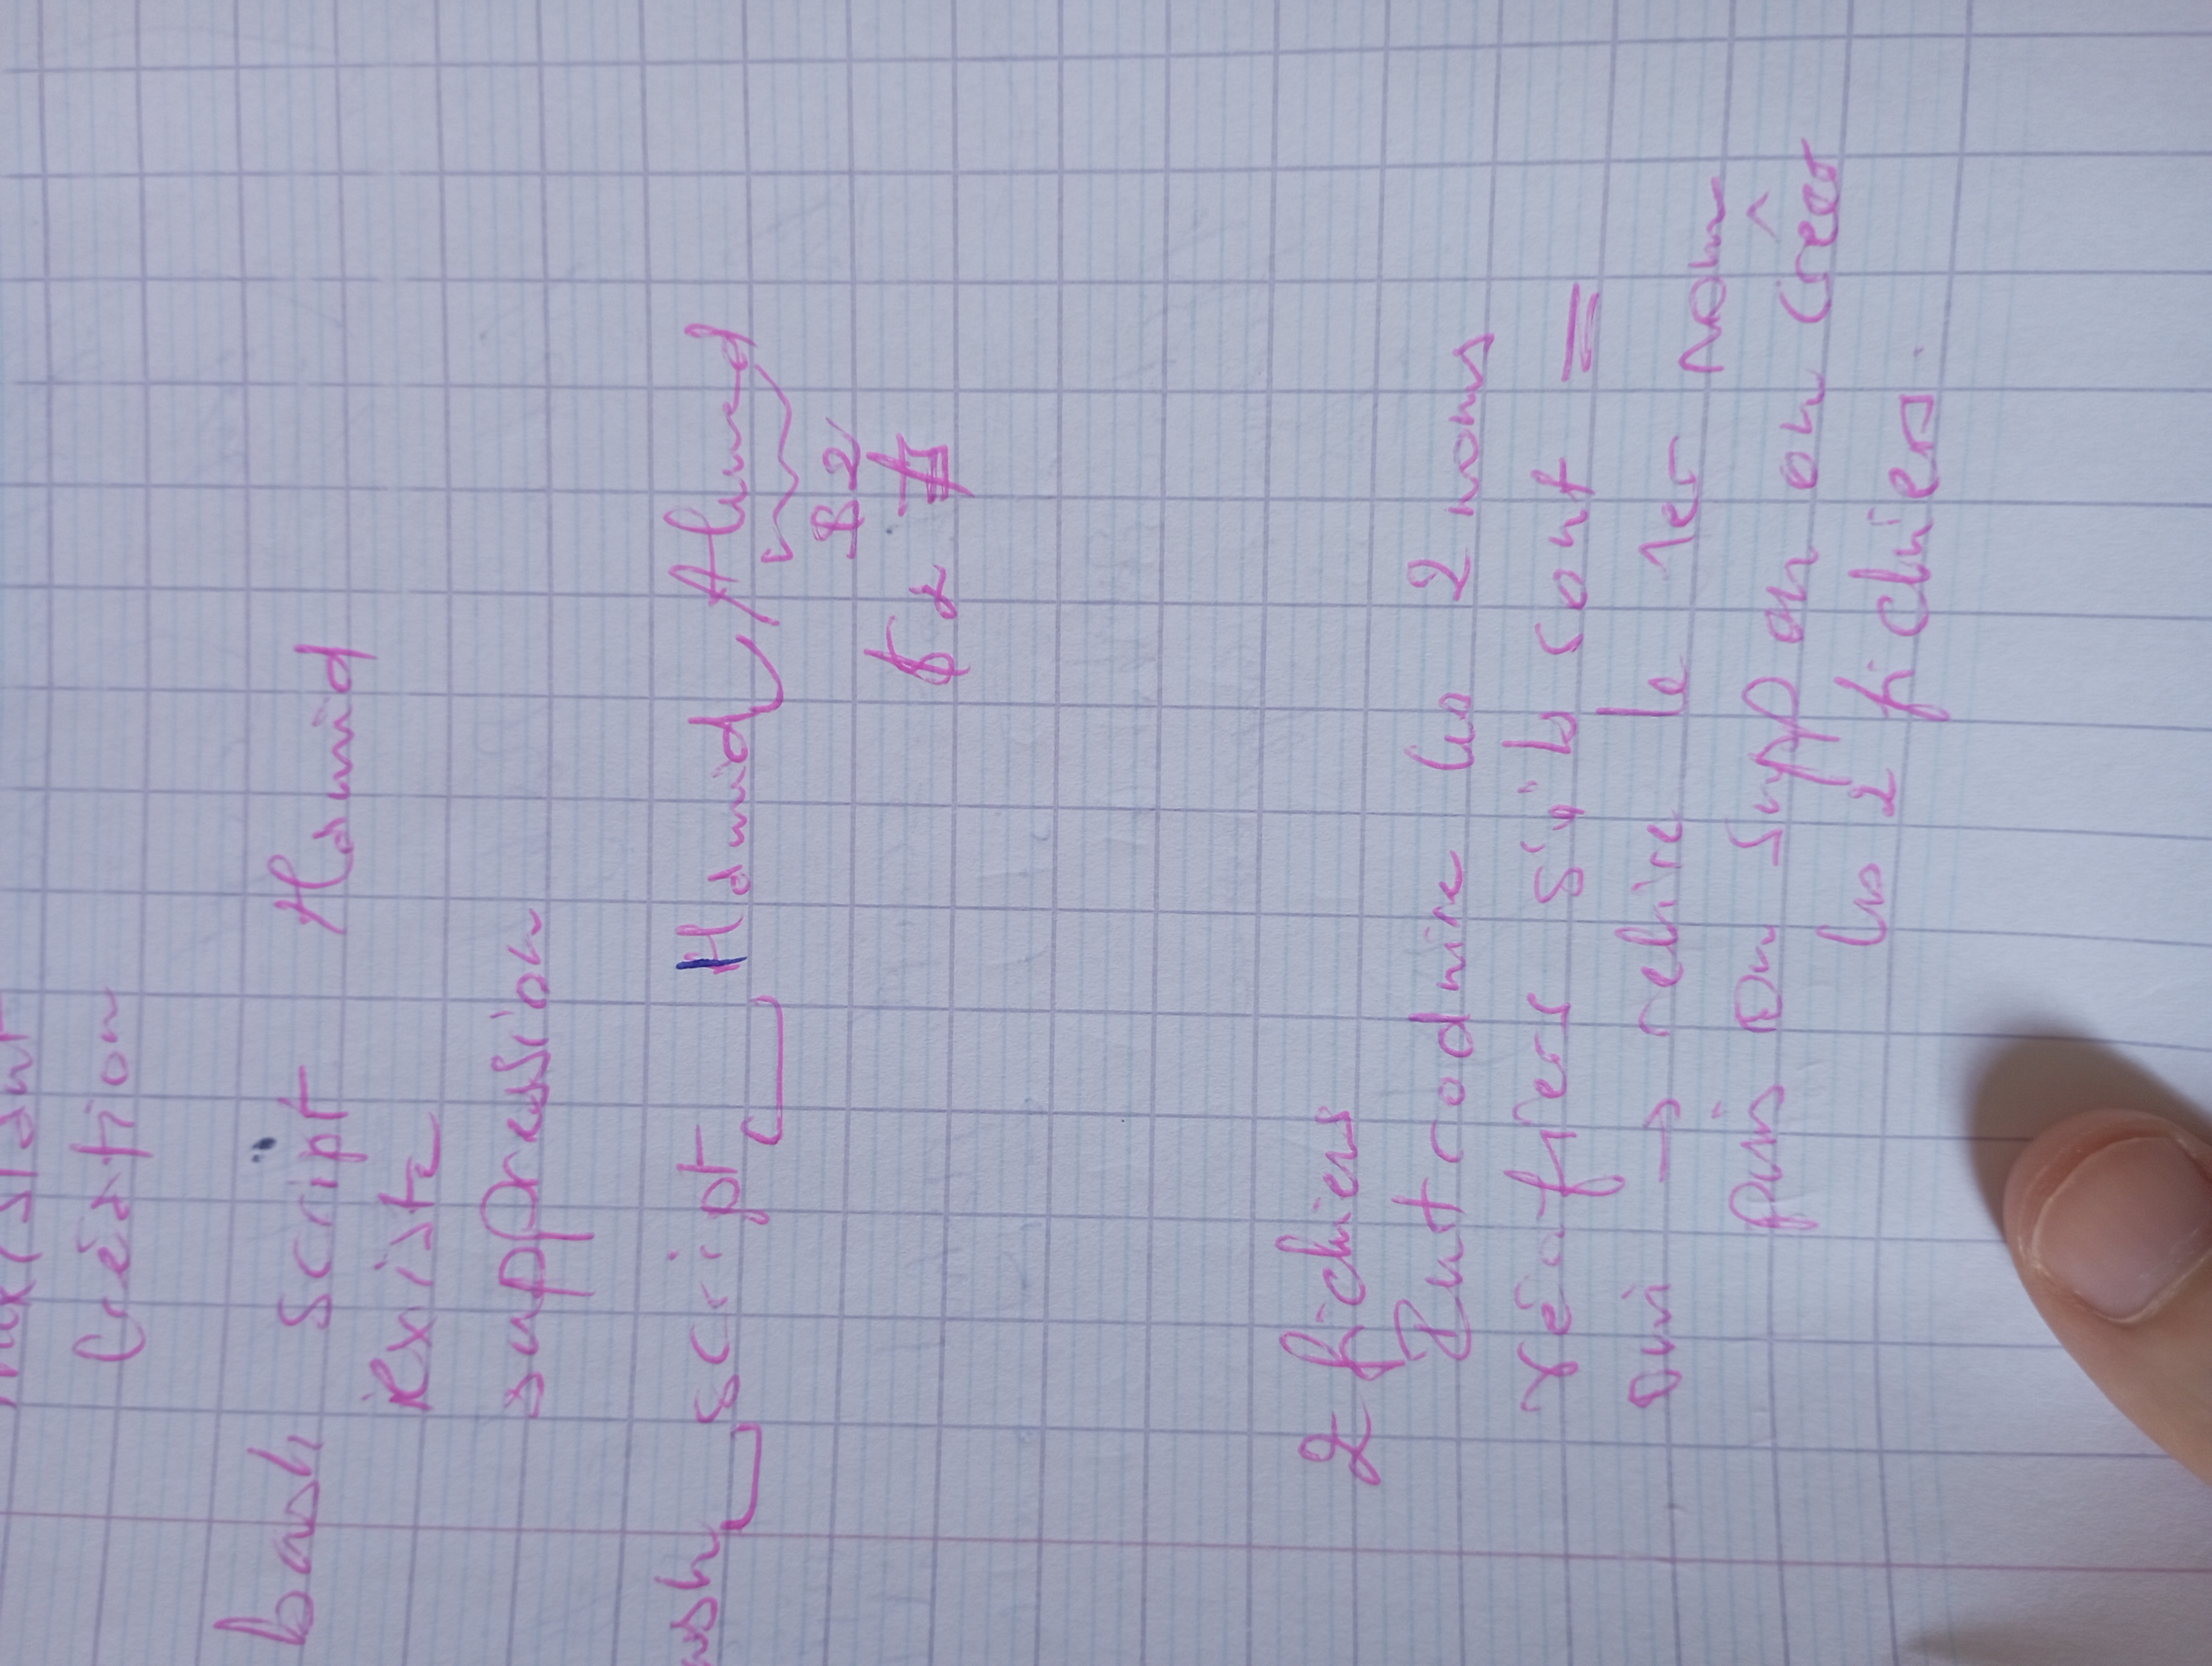 inexistant
Création
bash script Hamid
existe
suppression
ash script Hamid Ahmed
$2
$2
2 fichiers
Introduire les 2 noms
vérifiers s'ils sont =
oui → relire le 1er nom
puis on supp ou on créer
les 2 fichiers.